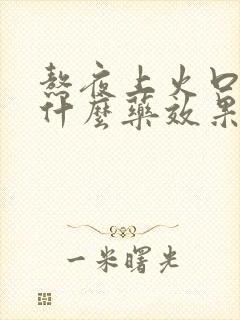 熬夜上火口
什麼藥效果
一米曙光